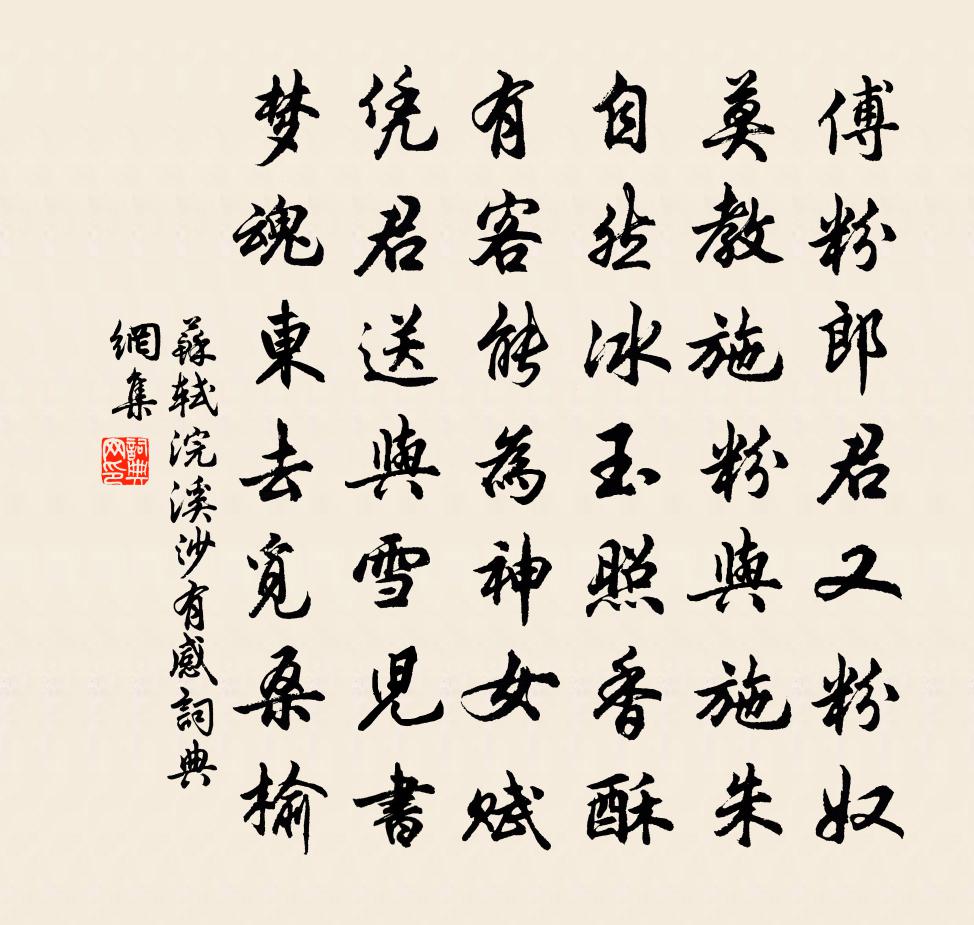 傅粉郎君又粉奴
莫教施粉與施朱
自然冰玉照香酥
有客能為神女賦
凭君送與雪兒書
梦魂東去覓桑榆
蘇轼浣溪沙有感詞典
網集
詞典
网印